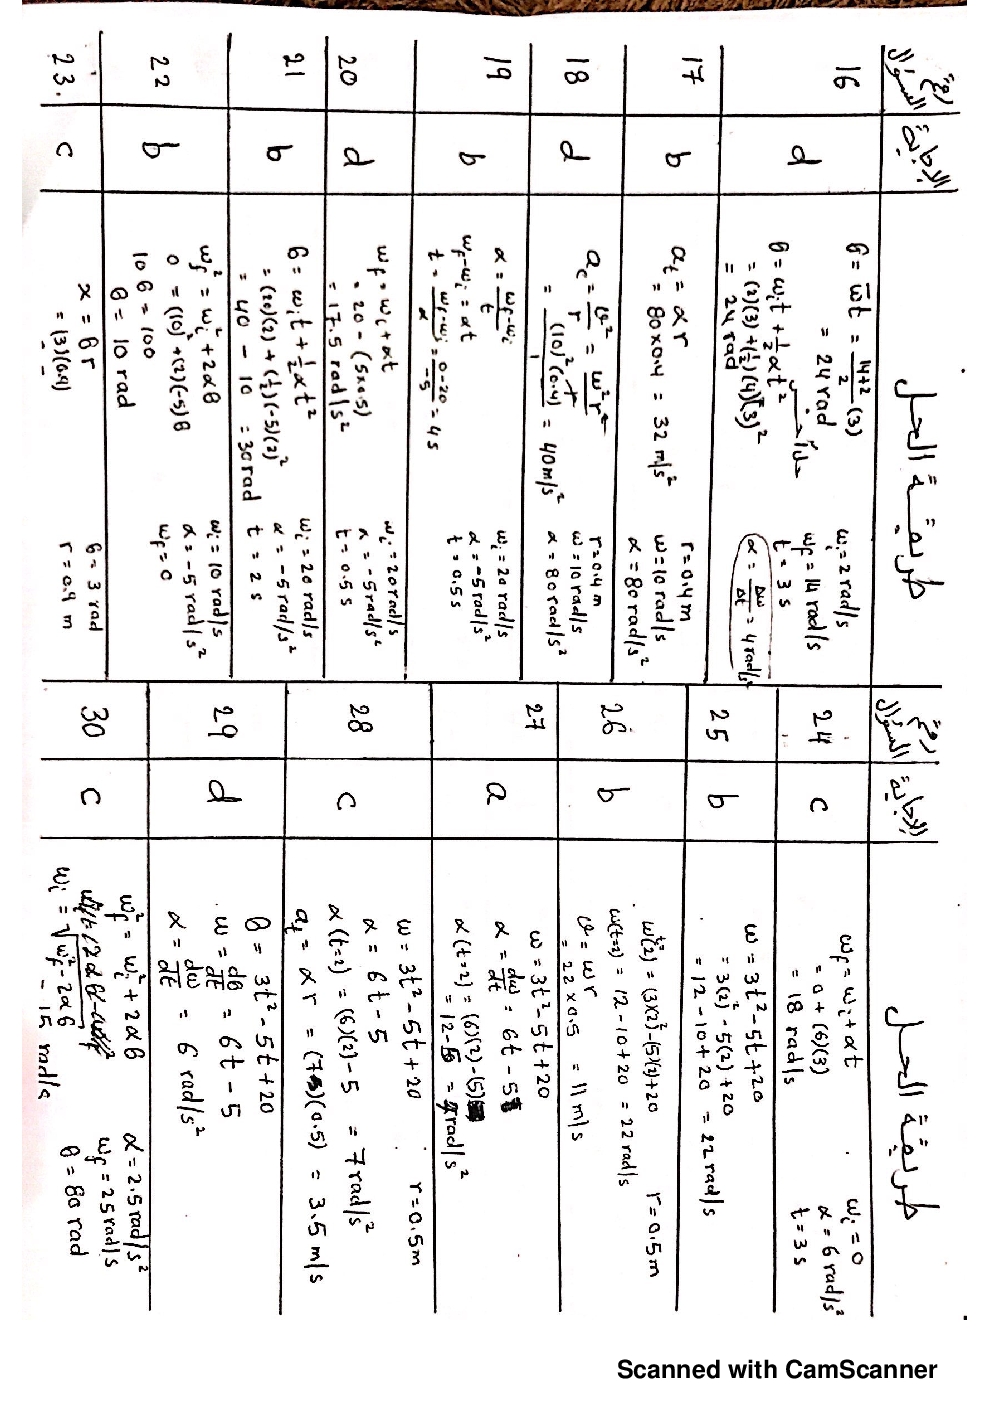 رقم السؤال
الإجابة
طريقة الحل
16
d
θ = ω̄t = 14+2/2 (3)
= 24 rad
θ = ωit + 1/2 αt²
= (2)(3) + (1/2)(4)(3)²
= 24 rad
ωi = 2 rad/s
ωf = 14 rad/s
t = 3 s
α = Δω/Δt = 4 rad/s
17
b
at = αr
= 80×0.4 = 32 m/s²
r = 0.4 m
ω = 10 rad/s
α = 80 rad/s²
18
d
ac = v²/r = ω²r
= (10)²(0.4)/1 = 40 m/s²
r = 0.4 m
ω = 10 rad/s
α = 80 rad/s²
19
b
α = ωf-ωi/t
ωf-ωi = αt
t = ωf-ωi/α = 0-20/-5 = 4s
ωi = 20 rad/s
α = -5 rad/s²
t = 0.5s
20
d
ωf = ωi + αt
= 20 - (5×0.5)
= 17.5 rad/s²
ωi = 20 rad/s
α = -5 rad/s²
t = 0.5 s
21
b
θ = ωit + 1/2 αt²
= (20)(2) + (1/2)(-5)(2)²
= 40 - 10 = 30 rad
ωi = 20 rad/s
α = -5 rad/s²
t = 2 s
22
b
ωf² = ωi² + 2αθ
0 = (10)² + (2)(-5)θ
10θ = 100
θ = 10 rad
ωi = 10 rad/s
α = -5 rad/s²
ωf = 0
23.
c
x = θr
= (3)(0.9)
θ = 3 rad
r = 0.9 m
رقم السؤال
الإجابة
طريقة الحل
24
c
ωf = ωi + αt
= 0 + (6)(3)
= 18 rad/s
ωi = 0
α = 6 rad/s²
t = 3 s
25
b
ω = 3t² - 5t + 20
= 3(2)² - 5(2) + 20
= 12 - 10 + 20 = 22 rad/s
26
b
ω(2) = (3)(2)² - (5)(2) + 20
ω(t=2) = 12 - 10 + 20 = 22 rad/s
v = ωr
= 22×0.5 = 11 m/s
r = 0.5 m
27
a
ω = 3t² - 5t + 20
α = dω/dt = 6t - 5
α(t=2) = (6)(2) - (5)
= 12 - 5 = 7 rad/s²
28
c
ω = 3t² - 5t + 20
α = 6t - 5
α(t=2) = (6)(2) - 5 = 7 rad/s²
at = αr = (7)(0.5) = 3.5 m/s
r = 0.5m
29
d
θ = 3t² - 5t + 20
ω = dθ/dt = 6t - 5
α = dω/dt = 6 rad/s²
30
c
ωf² = ωi² + 2αθ
ωi = √ωf² - 2αθ
= 15 rad/s
α = 2.5 rad/s²
ωf = 25 rad/s
θ = 80 rad
Scanned with CamScanner